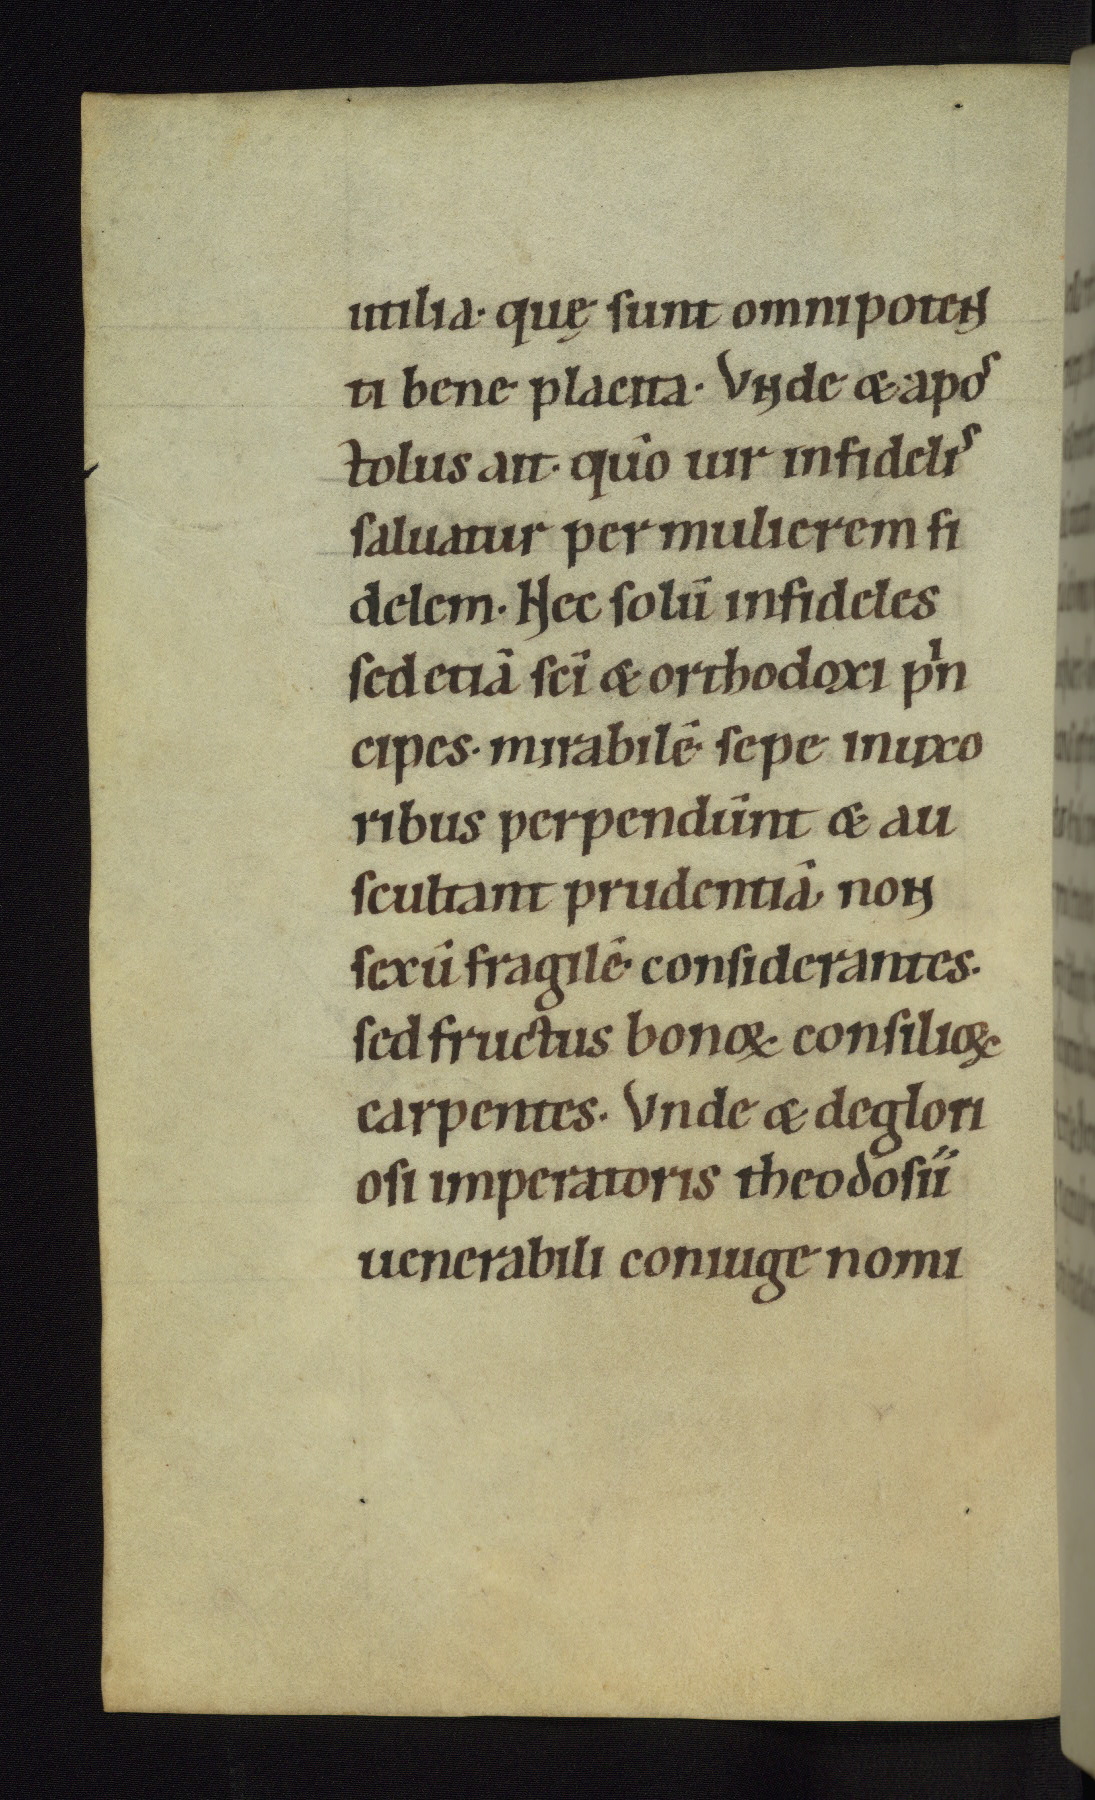 utilia· quę sunt omnipoten
ti bene placita· Vnde & apos
tolus ait· quō uir infidelis
saluatur per mulierem fi
delem· Nec solū infideles
sed etiā sc̄i & orthodoxi pⁱn
cipes· mirabilē sepe in uxo
ribus perpendunt & au
scultant prudentiā non
sexū fragilē considerantes·
sed fructus bonoꝝ consilioꝝ
carpentes· Vnde & de glori
osi imperatoris theodosii
uenerabili coniuge nomi